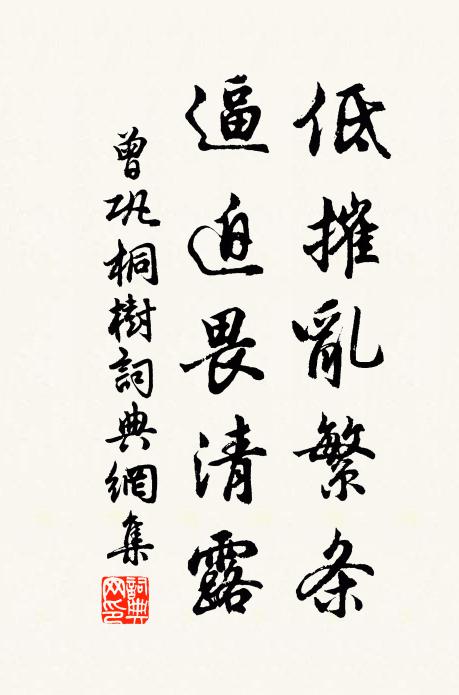 低摧亂繁条
逼迫畏清露
曾巩桐樹詞典網集
詞典网印